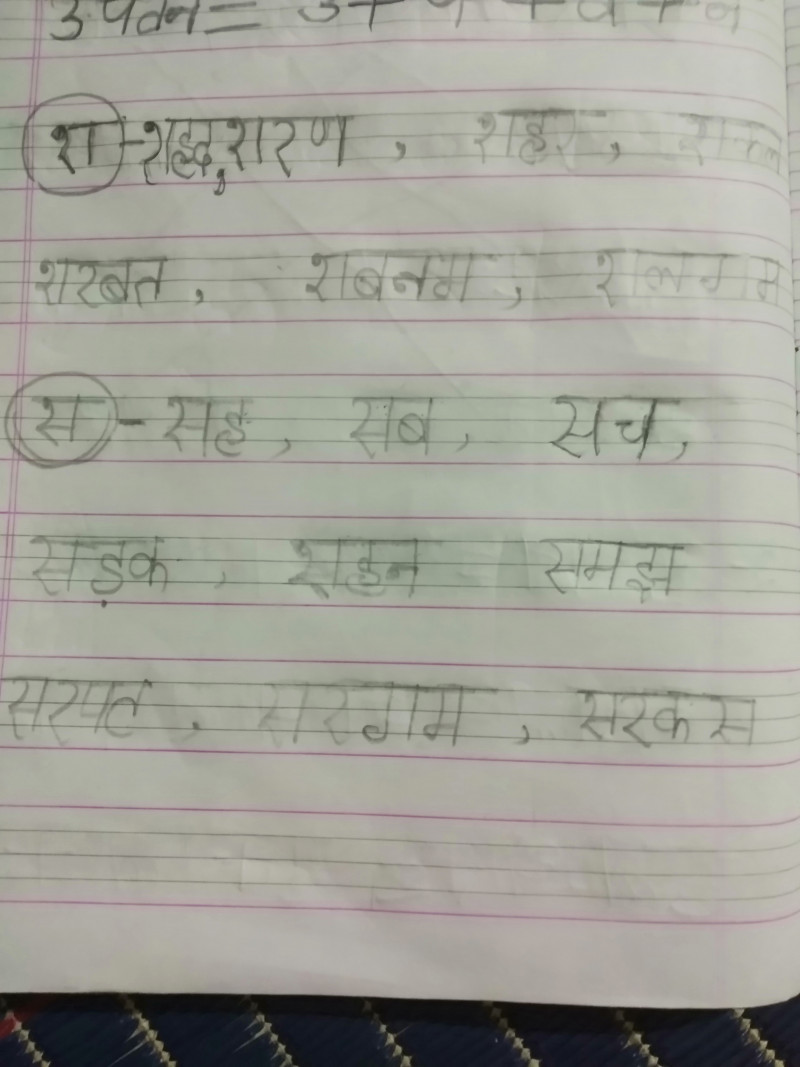 उपवन = उ + प + व + न
श - शहद, शरण, शहर, शक्ल
शरबत, शबनम, शलगम
स - सह, सब, सच,
सड़क, सहन समझ
सरपट, सरगम, सरकस